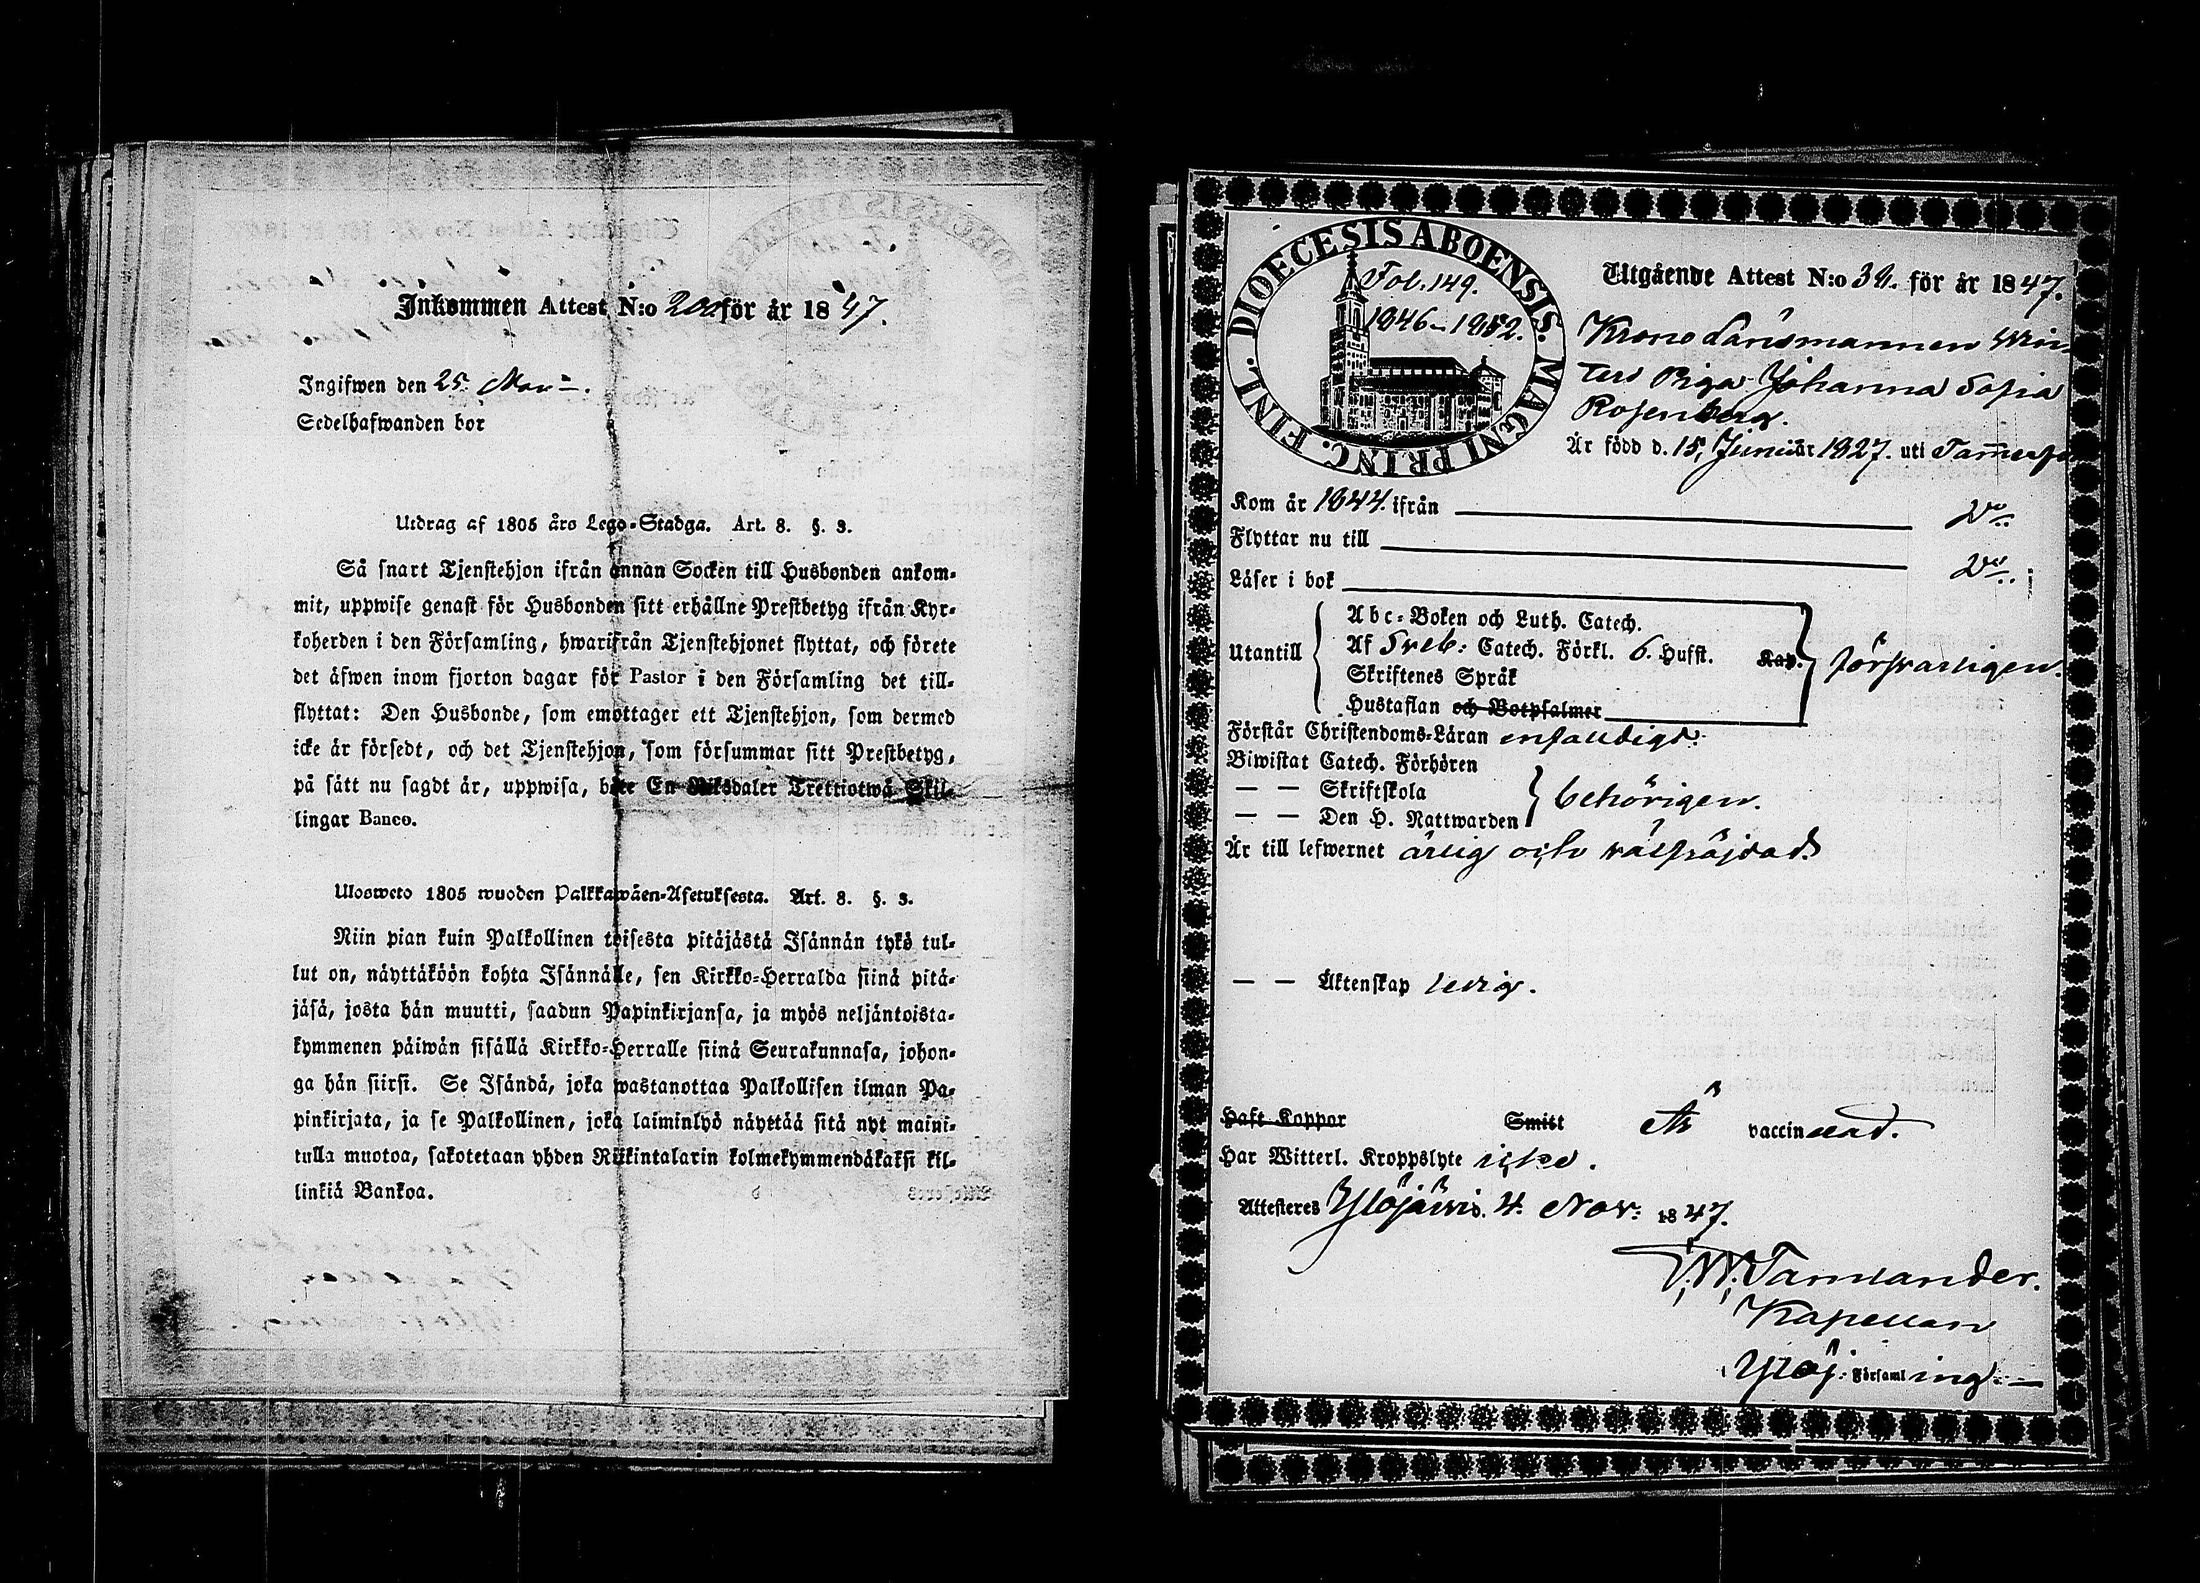 Inkommen Attest N:o 200 för år 1847.
Ingifwen den 25.
Sedelhafwanden bor
Utdrag af 1805 års Lego-Stadga. Art. 8. §. 3.
Så snart Tjenstehjon ifrån annan Socken till Husbonden ankom-
mit, uppwise genast för Husbonden sitt erhållne Prestbetyg ifrån Kyr-
koherden i den Församling, hwarifrån Tjenstehjonet flyttat, och förete
det äfwen inom fjorton dagar för Pastor i den Församling det till-
flyttat: Den Husbonde, som emottager ett Tjenstehjon, som dermed
icke är försedt, och det Tjenstehjon, som försummar sitt Prestbetyg,
på sätt nu sagdt är, uppwisa, böte En Riksdaler Trettiotwå Skil-
lingar Banco.
Ulosweto 1805 wuoden Palkkawäen-Asetuksesta. Art. 8. §. 3.
Niin pian kuin Palkollinen toisesta pitäjästä Isännän tykö tul-
lut on, näyttäköön kohta Isännälle, sen Kirkko-Herralda siinä pitä-
jäsä, josta hän muutti, saadun Papinkirjansa, ja myös neljäntoista-
kymmenen päiwän sisällä Kirkko-Herralle siinä Seurakunnasa, johon-
ga hän siirsi. Se Isändä, joka wastanottaa Palkollisen ilman Pa-
pinkirjata, ja se Palkollinen, joka laiminlyö näyttää sitä nyt maini-
tulla muotoa, sakotetaan yhden Riikintalarin kolmekymmendäkaksi kil-
linkiä Bankoa.
DIOECESIS ABOENSIS. MAGNI PRINC. FINL.
Fol. 149.
1846-1852.
Utgående Attest N:o 39. för år 1847.
Krono Länsmannen Win-
ters Piga Johanna Sofia
Rosenberg.
Är född d. 15, Junii år 1827. uti Tammerfo
Kom år 1844. ifrån D:o
Flyttar nu till D:o
Läser i bok
Utantill
Abc-Boken och Luth. Catech.
Af Sveb: Catech. Förkl. 6. Hufst. Kap.
Skriftenes Språk
Hustaflan och Botpsalmer
försvarligen.
Förstår Christendoms-Läran enfaldigt.
Biwistat Catech. Förhören
— — Skriftskola
— — Den H. Nattwarden
behörigen.
Är till lefwernet ärlig och välfräjdad.
— — Äktenskap ledig.
Haft Koppor Smitt Är vaccinerad.
Har Witterl. Kroppslyte icke.
Attesteres Ylöjärvi d. 4. Nov: 1847.
Tamlander.
Kapellan
Ylöj: Församling.